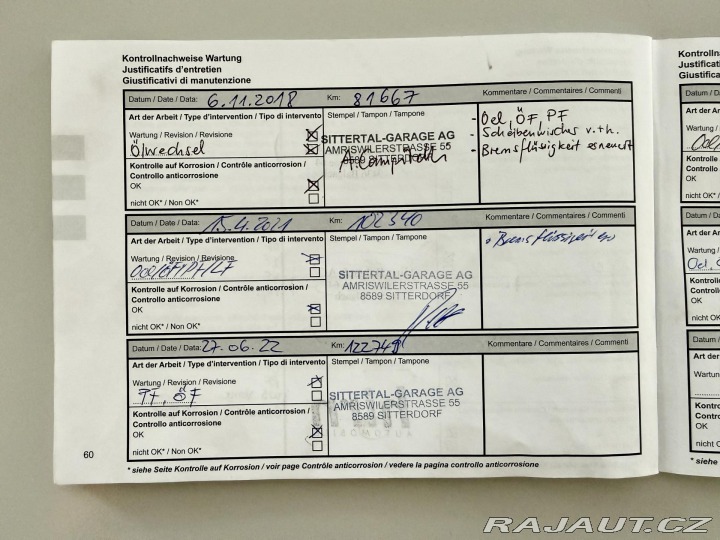 Kontrollnachweise Wartung
Justificatifs d'entretien
Giustificativi di manutenzione
Datum / Date / Data: 6.11.2018 Km: 81667 Kommentare / Commentaires / Commenti
Art der Arbeit / Type d'intervention / Tipo di intervento Stempel / Tampon / Tampone
- Oel, ÖF, PF
Wartung / Revision / Revisione
- Scheibenwischer v.+h.
Ölwechsel
- Bremsflüssigkeit erneuert
SITTERTAL-GARAGE AG
AMRISWILERSTRASSE 55
8589 SITTERDORF
Kontrolle auf Korrosion / Contrôle anticorrosion /
Controllo anticorrosione
OK
nicht OK* / Non OK*
Datum / Date / Data: 15.4.2021 Km: 102340 Kommentare / Commentaires / Commenti
Art der Arbeit / Type d'intervention / Tipo di intervento Stempel / Tampon / Tampone
Wartung / Revision / Revisione
Oel/ÖF/PF/LF
SITTERTAL-GARAGE AG
AMRISWILERSTRASSE 55
8589 SITTERDORF
Kontrolle auf Korrosion / Contrôle anticorrosion /
Controllo anticorrosione
OK
nicht OK* / Non OK*
Datum / Date / Data: 27.06.22 Km: Kommentare / Commentaires / Commenti
Art der Arbeit / Type d'intervention / Tipo di intervento Stempel / Tampon / Tampone
Wartung / Revision / Revisione
PF, ÖF
SITTERTAL-GARAGE AG
AMRISWILERSTRASSE 55
8589 SITTERDORF
Kontrolle auf Korrosion / Contrôle anticorrosion /
Controllo anticorrosione
OK
nicht OK* / Non OK*
60
* siehe Seite Kontrolle auf Korrosion / voir page Contrôle anticorrosion / vedere la pagina controllo anticorrosione
RAJAUT.CZ